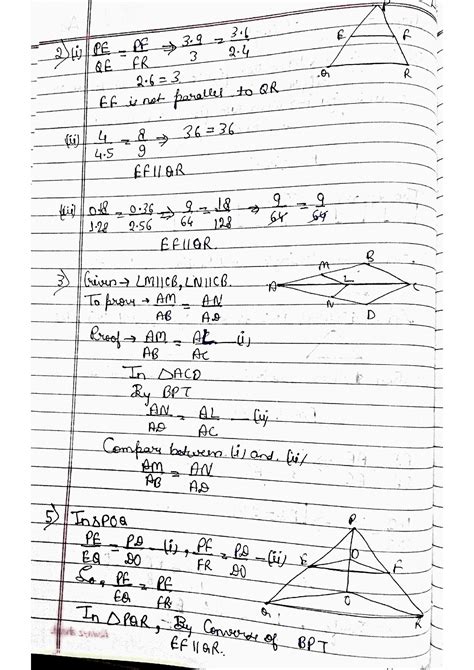 P
E F
Q R
2) (i) PE/QE = PF/FR ⇒ 3.9/3 = 3.6/2.4
2.6 = 3
EF is not parallel to QR
(ii) 4/4.5 = 8/9 ⇒ 36 = 36
EF||QR
(iii) 0.18/1.28 = 0.36/2.56 ⇒ 9/64 = 18/128 ⇒ 9/64 = 9/64
EF||QR.
3) Given → LM||CB, LN||CB.
To prove → AM/AB = AN/AD
A M B L N D C
Proof → AM/AB = AL/AC —(i)
In △ACD
By BPT
AN/AD = AL/AC —(ii)
Compare between (i) and (ii)
AM/AB = AN/AD
5) In △POQ
PE/EQ = PD/DO —(i), PF/FR = PD/DO —(ii)
So, PE/EQ = PF/FR
In △PQR, By Converse of BPT
EF||QR.
P
E D F
O
Q R